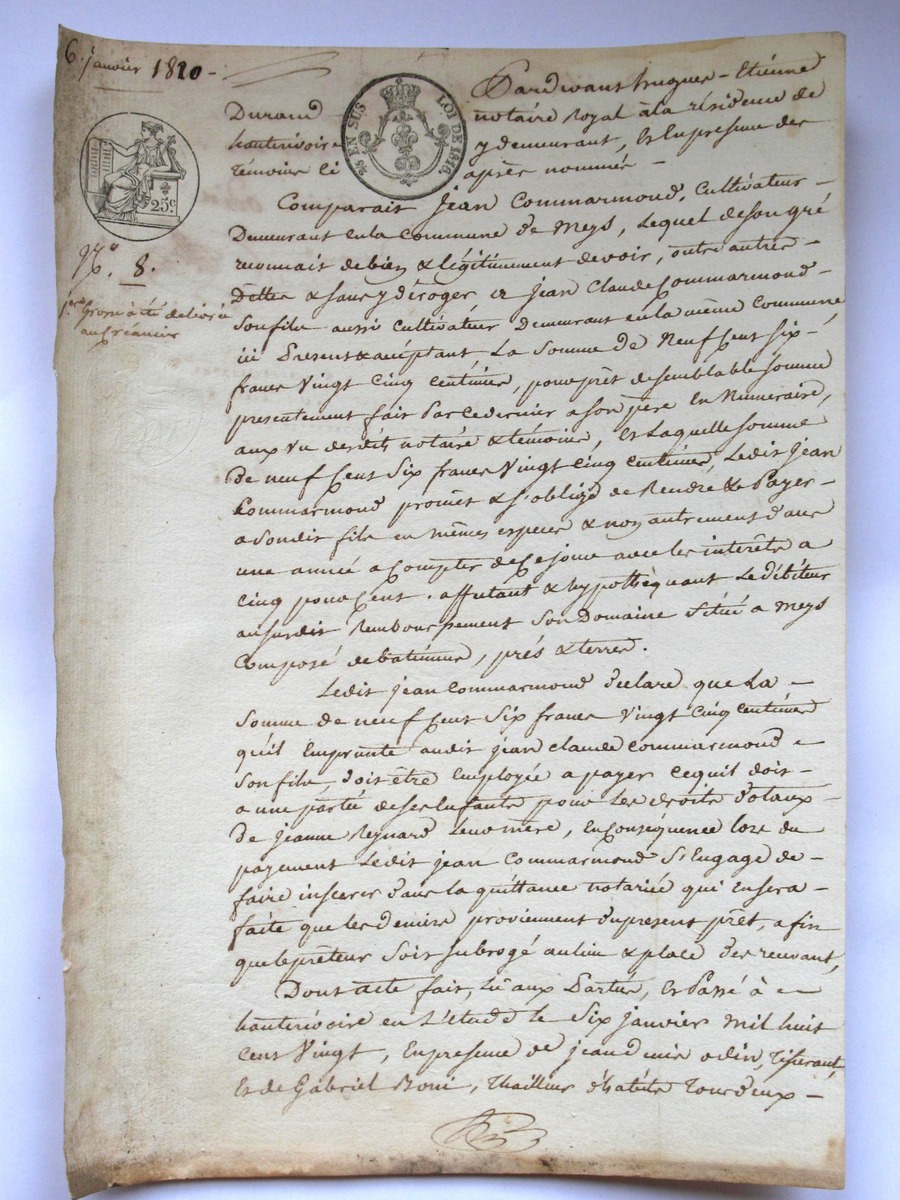 6. janvier 1820 -
Pardevant hugues - Etiénne
Durand notaire Royal à la résidence de
hauterivoire y demeurant, Et En présence des
témoins ci après nommés -
25 EN SUS LOI DE 1816.
25c
No. 8.
1ere Grosse a été délivrée
au Créancier
Comparait jean Commarmond, Cultivateur -
Demeurant en la Commune de Meys, Lequel de son gré
reconnait de bien & légitimement devoir, outre autres -
Dettes & sans y déroger a jean Claude Commarmond -
Son fils aussi Cultivateur demeurant en la même Commune
ici Présent & acceptant, La Somme de Neuf Cent Six -
francs Vingt Cinq Centimes, pour prêt de semblable Somme
présentement fait Par ce dernier a son père En Numéraire,
aux vu desdits notaire & témoins, Et Laquelle Somme
De neuf Cent Six francs Vingt Cinq Centimes, Ledit jean
Commarmond promet & s'oblige de Rendre & Payer -
a Sondit fils en mêmes especes & non autrement dans
une année a Compter de Ce jour avec les interêts a
Cinq pour Cent. affectant & hypothéquant Le Débiteur
au susdit Remboursement Son Domaine Situé a Meys
Composé de batimens, prés & terres.
Ledit jean Commarmond déclare que La -
Somme de neuf Cent Six francs Vingt Cinq Centimes
qu'il Emprunte audit jean Claude Commarmond -
Son fils, doit être Employée a payer ce qu'il doit -
a une partie de ses Enfants pour Les droits dotaux -
De jeanne Reynard Leur mère, En Conséquence lors du
payement Ledit jean Commarmond S'Engage de -
faire inserer dans la quittance notariée qui En sera -
faite que les deniers proviennent du présent prêt, afin
que le prêteur Soit Subrogé au lieu & place des recevant,
Dont acte fait, Lu aux Parties, Et Passé à -
hauterivoire en L'étude le Six janvier Mil huit
Cent Vingt, En présence de jean denis odin, Tisserant,
Et de Gabriel Boni, thailleur d'habits Tous deux -